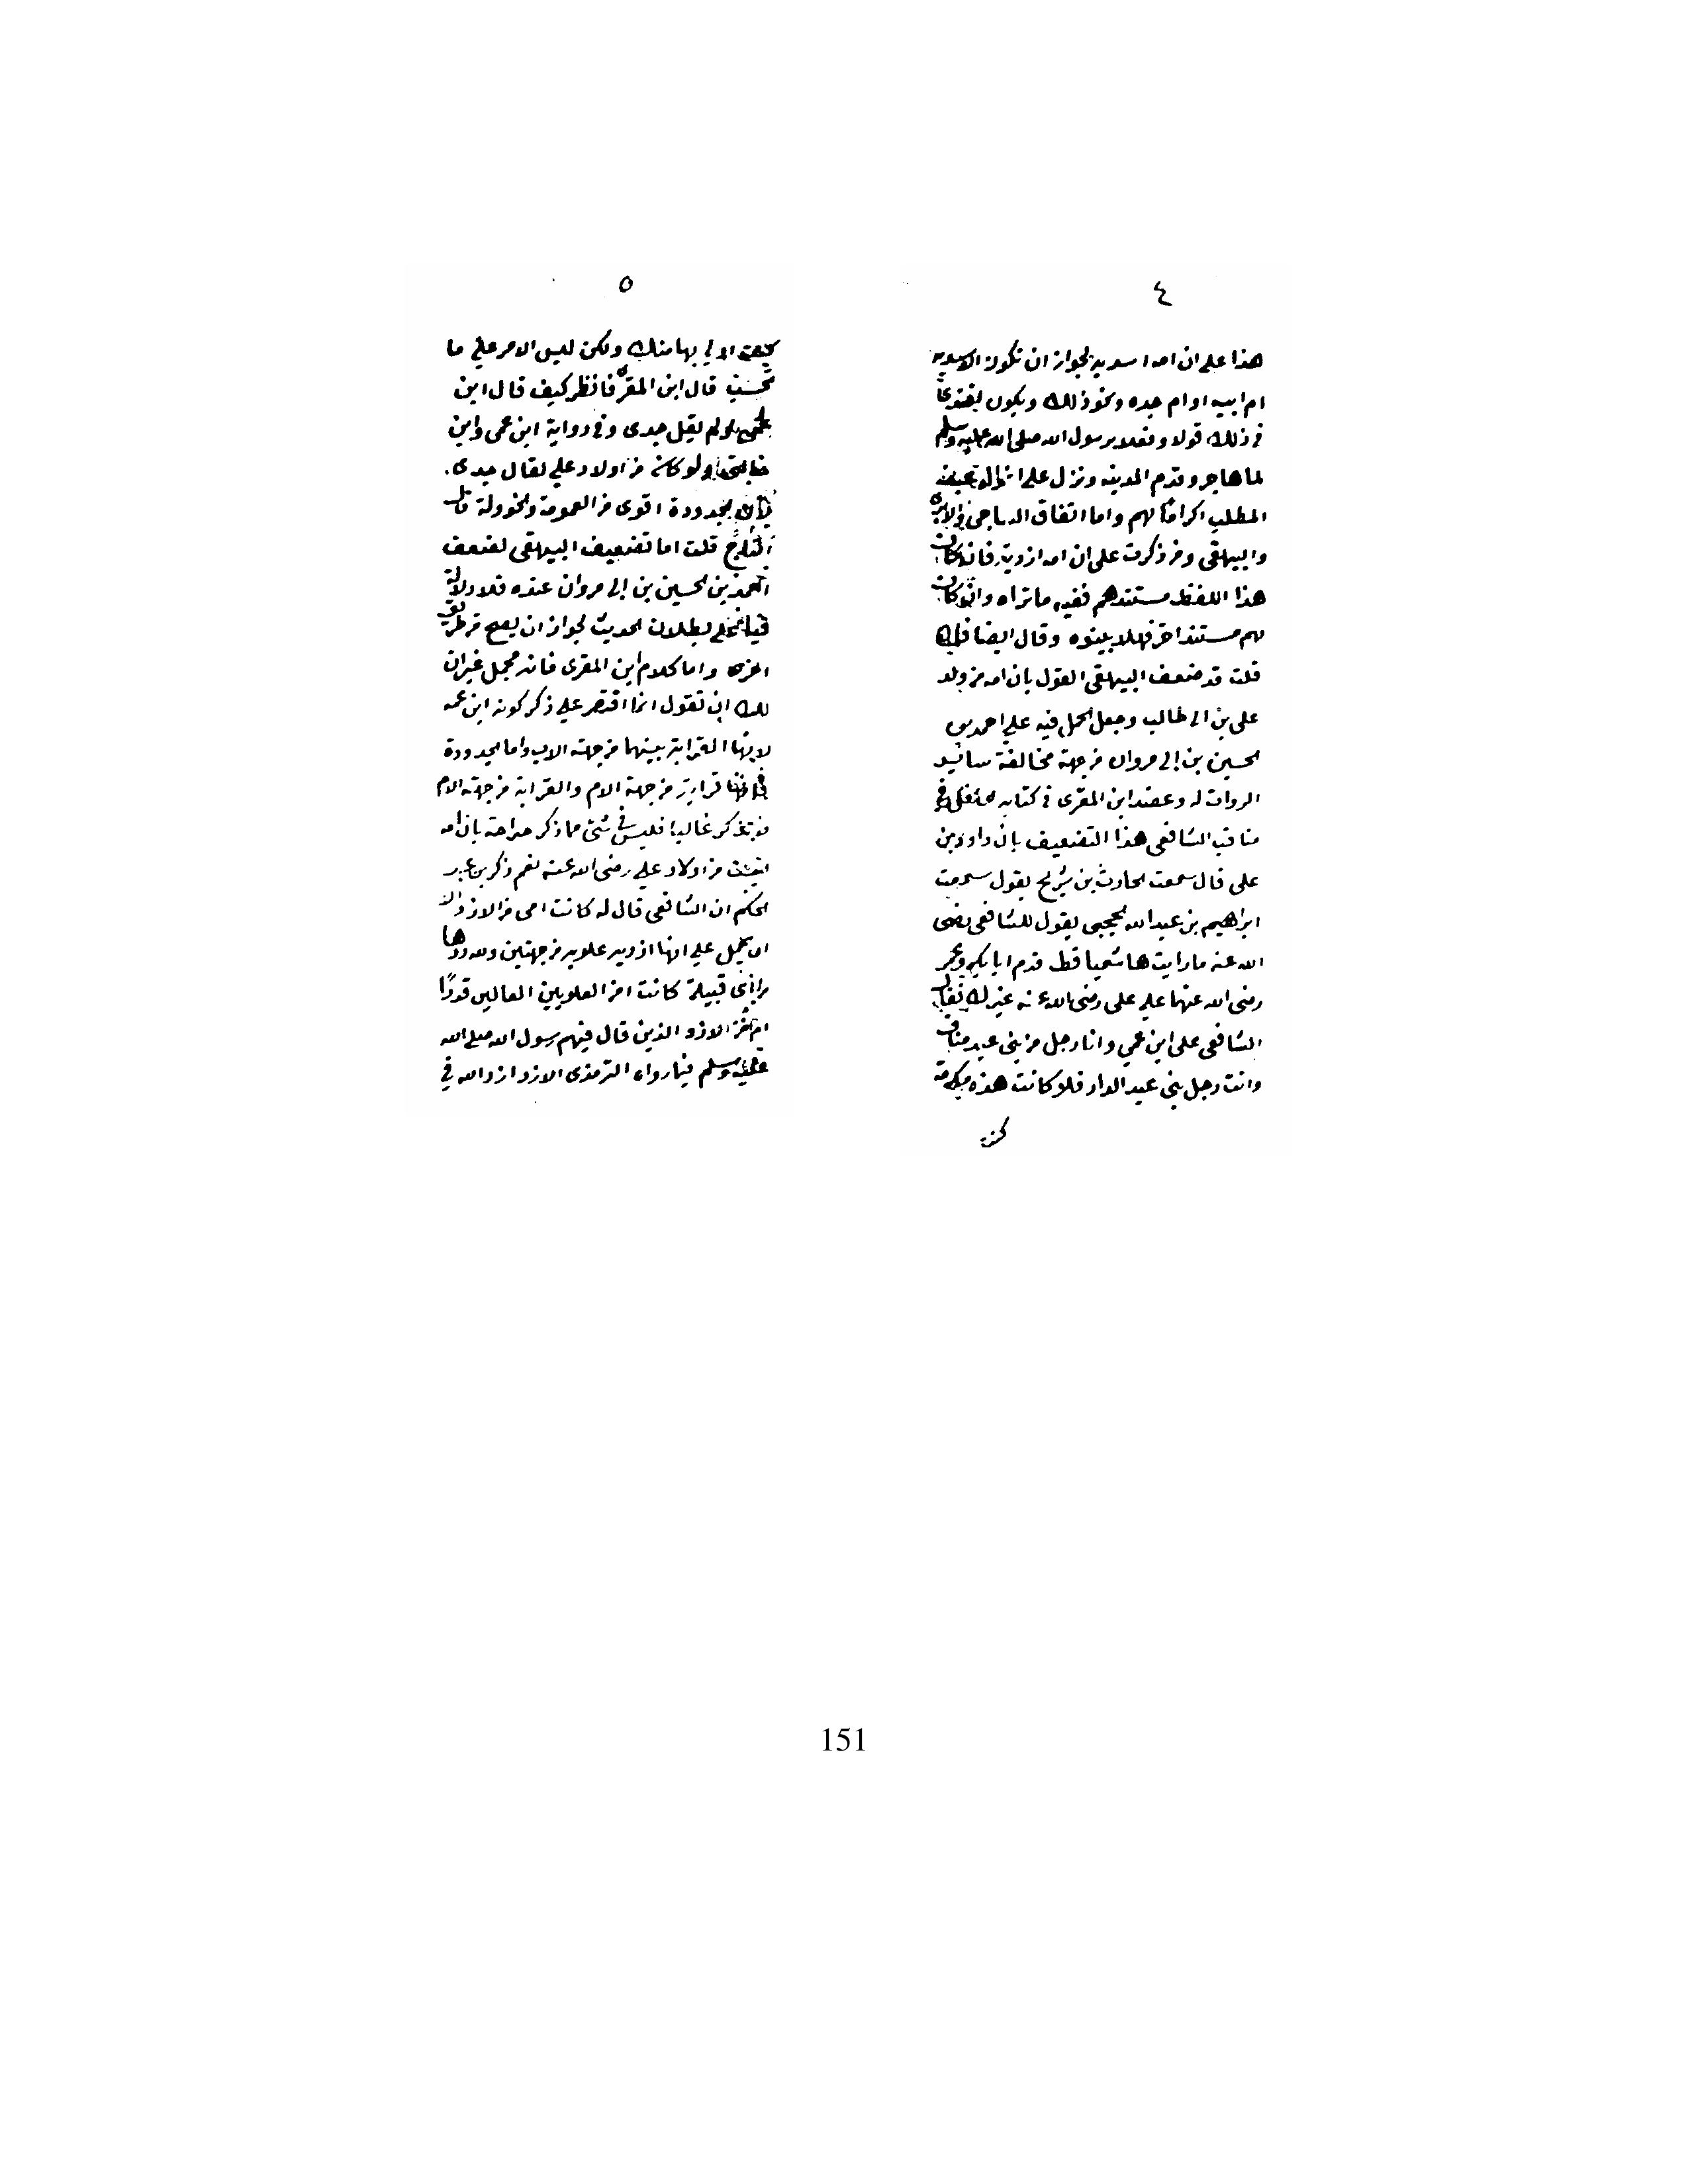 ٤
هذا على ان امه اسدية لجواز ان تكون الاسدية
ام ابيه او ام جده ونحو ذلك ويكون اقتدى
في ذلك قولا وفعلا برسول الله صلى الله عليه وسلم
لما هاجر وقدم المدينه ونزل على اخوال عبد
المطلب اكراما لهم واما اتفاق الساجي والابري
والبيهقي ومن ذكرت على ان امه ازدية فان كان
هذا اللفظ مستندهم ففيه ما تراه وان كان
لهم مستند اخر فهلا بينوه وقال ايضا فان
قلت قد ضعف البيهقي القول بان امه من ولد
علي بن ابي طالب وجعل الحمل فيه على احمد بن
الحسين بن ابي مروان من جهة مخالفة سائر
الروات له وعضد ابن المقرى في كتابه في
مناقب الشافعي هذا التضعيف بان داود بن
علي قال سمعت الحارث بن شريح يقول سمعت
ابراهيم بن عبد الله الحجبي يقول للشافعي رضى
الله عنه ما رايت هاشميا قط قدم ابا بكر وعمر
رضى الله عنهما على علي رضى الله عنه غيرك فقال
الشافعي علي ابن عمي وانا رجل من بني عبد مناف
وانت رجل بني عبد الدار فلو كانت هذه مكرمة
كنت
٥
كنت اولى بها منك ولكن ليس الامر على ما
تحسب قال ابن المقرى فانظر كيف قال ابن
عمي ولم يقل جدى وفي رواية ابن عمى وابن
خالتي ولو كان من اولاد علي لقال جدى
لان الجدودة اقوى من العمومة والخوولة قال
التاج قلت اما تضعيف البيهقى لضعف
احمد بن الحسين بن ابي مروان عنده فلا دلالة
فيه على بطلان الحديث لجواز ان يصح من طريق
اخرى واما كلام ابن المقرى فانه محمل غير ان
لك ان تقول انما اقتصر على ذكر كونه ابن عمه
لانها القرابة بينهما من جهة الاب واما الجدودة
فانها قرابة من جهة الام والقرابة من جهة الام
لا تذكر غالبا فليس في شئ مما ذكر صراحة بان امه
ليست من اولاد علي رضى الله عنه نعم ذكر ابن عبد
الحكم ان الشافعي قال له كانت امى من الازد الا
ان يحمل على انها ازدية علوية من جهتين ولله درها
من اى قبيلة كانت امن العلويين العالين قدرا
ام من الازد الذين قال فيهم رسول الله صلى الله
عليه وسلم فيما رواه الترمذى الازد ازد الله في
151